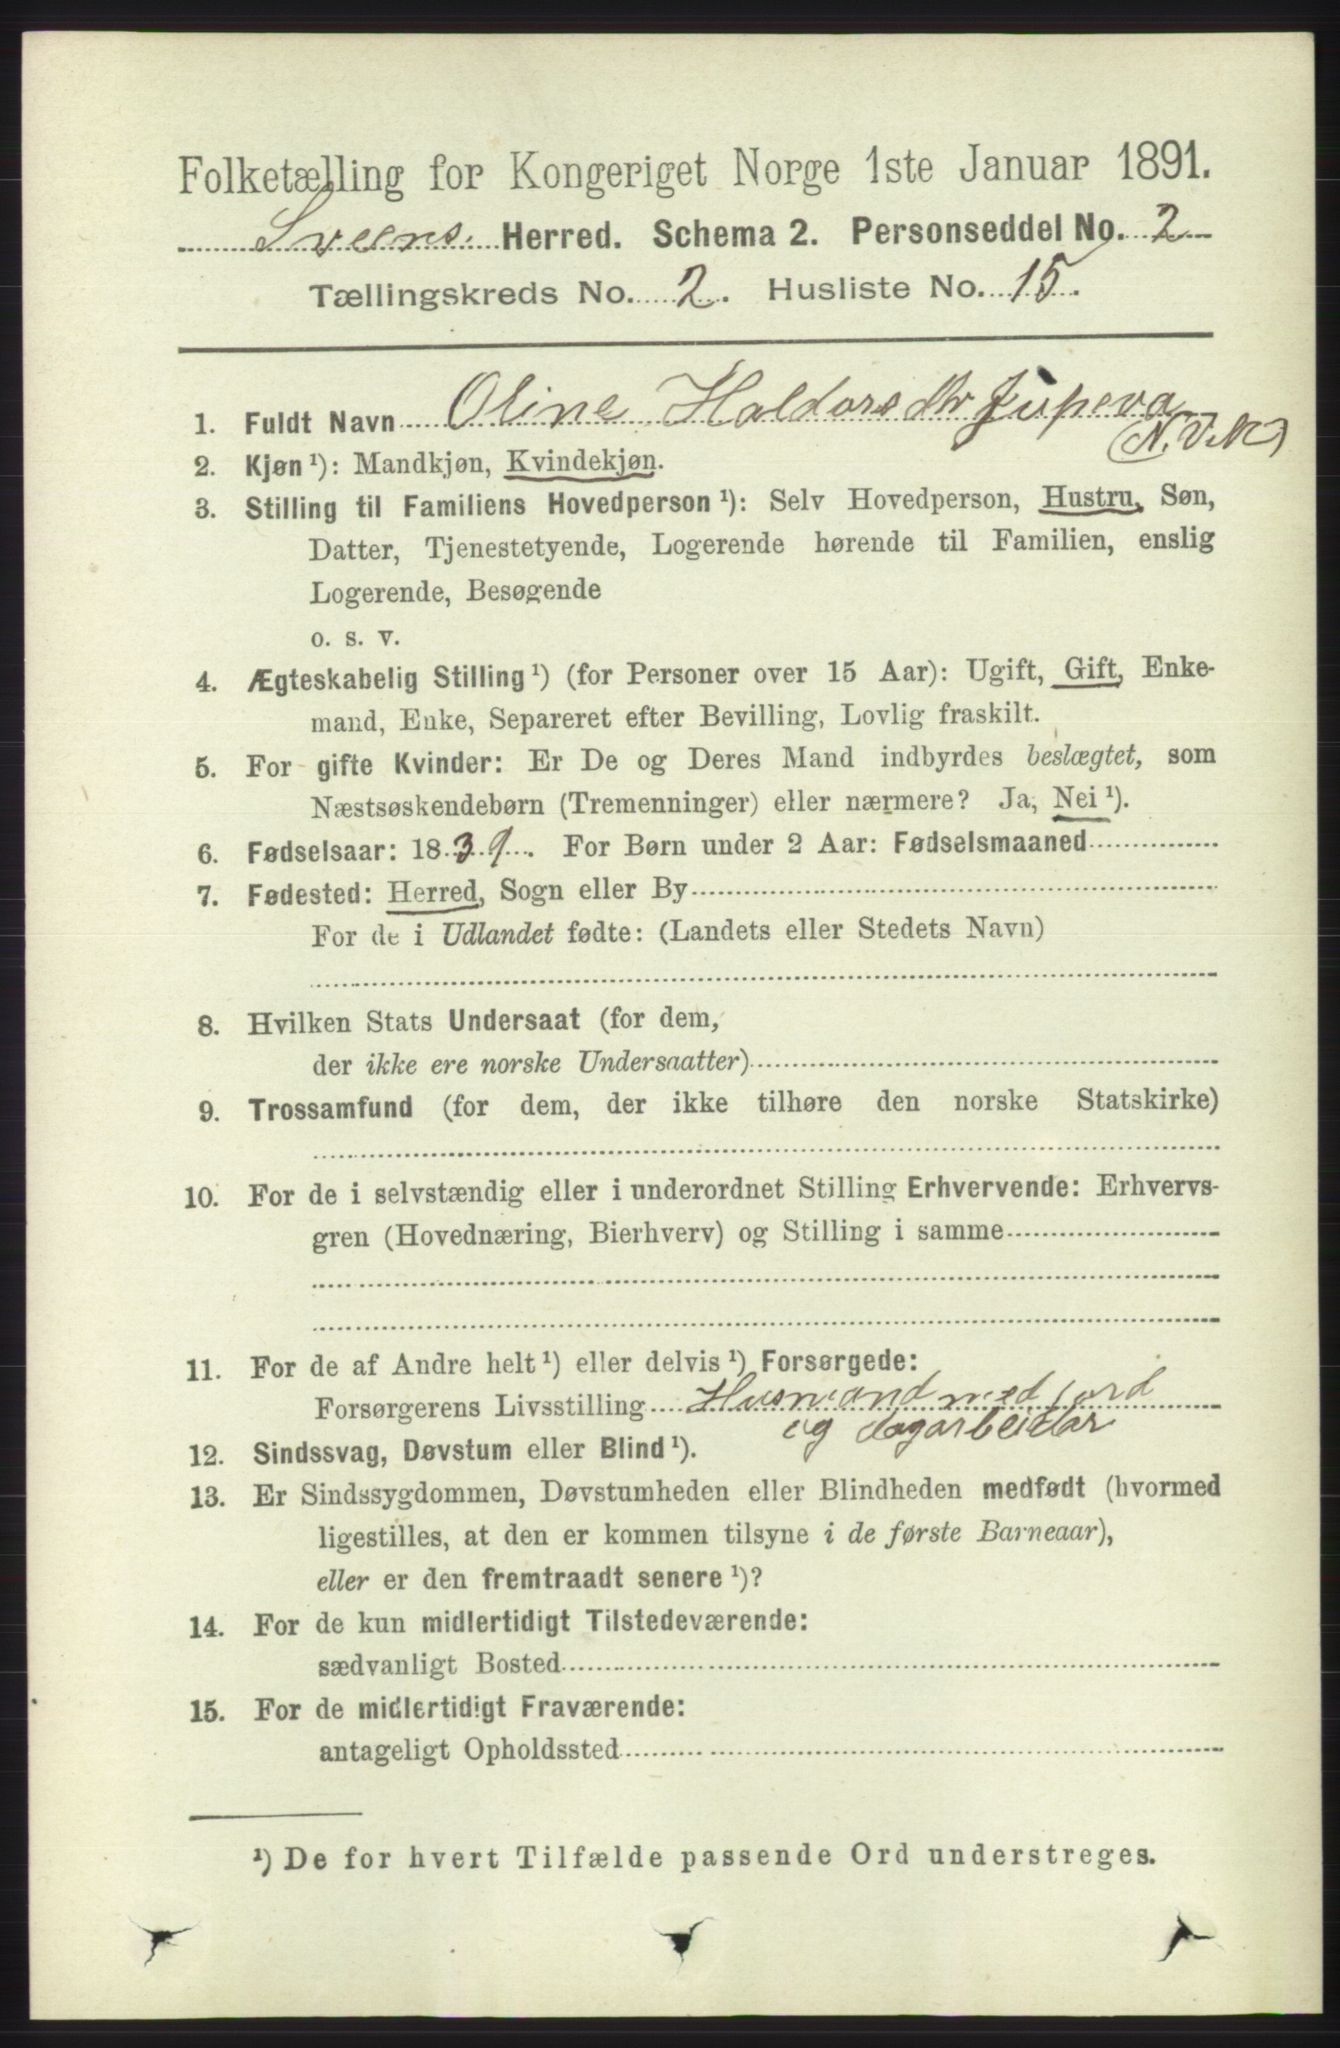 Folketælling for Kongeriget Norge 1ste Januar 1891.
Sveens Herred. Schema 2. Personseddel No. 2
Tællingskreds No. 2. Husliste No. 15.
1. Fuldt Navn Oline Haldorsdtr Jupeva
(N. Vik)
2. Kjøn ¹): Mandkjøn, Kvindekjøn.
3. Stilling til Familiens Hovedperson ¹): Selv Hovedperson, Hustru, Søn,
Datter, Tjenestetyende, Logerende hørende til Familien, enslig
Logerende, Besøgende
o. s. v.
4. Ægteskabelig Stilling ¹) (for Personer over 15 Aar): Ugift, Gift, Enke-
mand, Enke, Separeret efter Bevilling, Lovlig fraskilt.
5. For gifte Kvinder: Er De og Deres Mand indbyrdes beslægtet, som
Næstsøskendebørn (Tremenninger) eller nærmere? Ja, Nei ¹).
6. Fødselsaar: 1839. For Børn under 2 Aar: Fødselsmaaned
7. Fødested: Herred, Sogn eller By
For de i Udlandet fødte: (Landets eller Stedets Navn)
8. Hvilken Stats Undersaat (for dem,
der ikke ere norske Undersaatter)
9. Trossamfund (for dem, der ikke tilhøre den norske Statskirke)
10. For de i selvstændig eller i underordnet Stilling Erhvervende: Erhvervs-
gren (Hovednæring, Bierhverv) og Stilling i samme
11. For de af Andre helt ¹) eller delvis ¹) Forsørgede:
Forsørgerens Livsstilling Husmand med jord
og dagarbeidar
12. Sindssvag, Døvstum eller Blind ¹).
13. Er Sindssygdommen, Døvstumheden eller Blindheden medfødt (hvormed
ligestilles, at den er kommen tilsyne i de første Barneaar),
eller er den fremtraadt senere ¹)?
14. For de kun midlertidigt Tilstedeværende:
sædvanligt Bosted
15. For de midlertidigt Fraværende:
antageligt Opholdssted
¹) De for hvert Tilfælde passende Ord understreges.